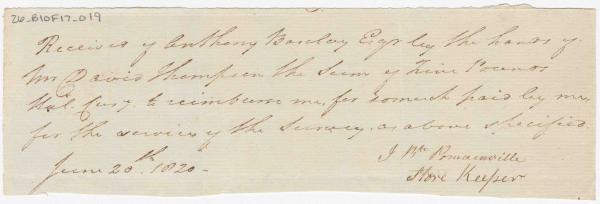 26_B10F17_019
Received of Anthony Barclay Esqr by the hands of
Mr David Thompson the Sum of Five Pounds
Hal. Cury to reimburse me, for so much paid by me,
for the service of the Survey. as above specified.
June 20th. 1820 -
J Bte Romainville
Store Keeper